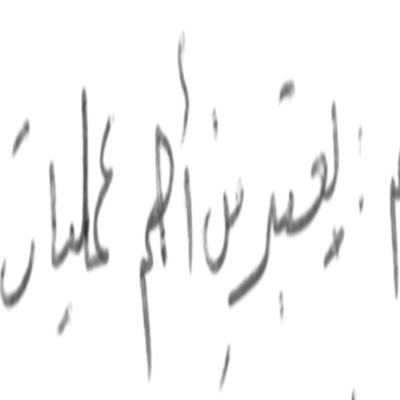 : يعتبر من أهم عمليات